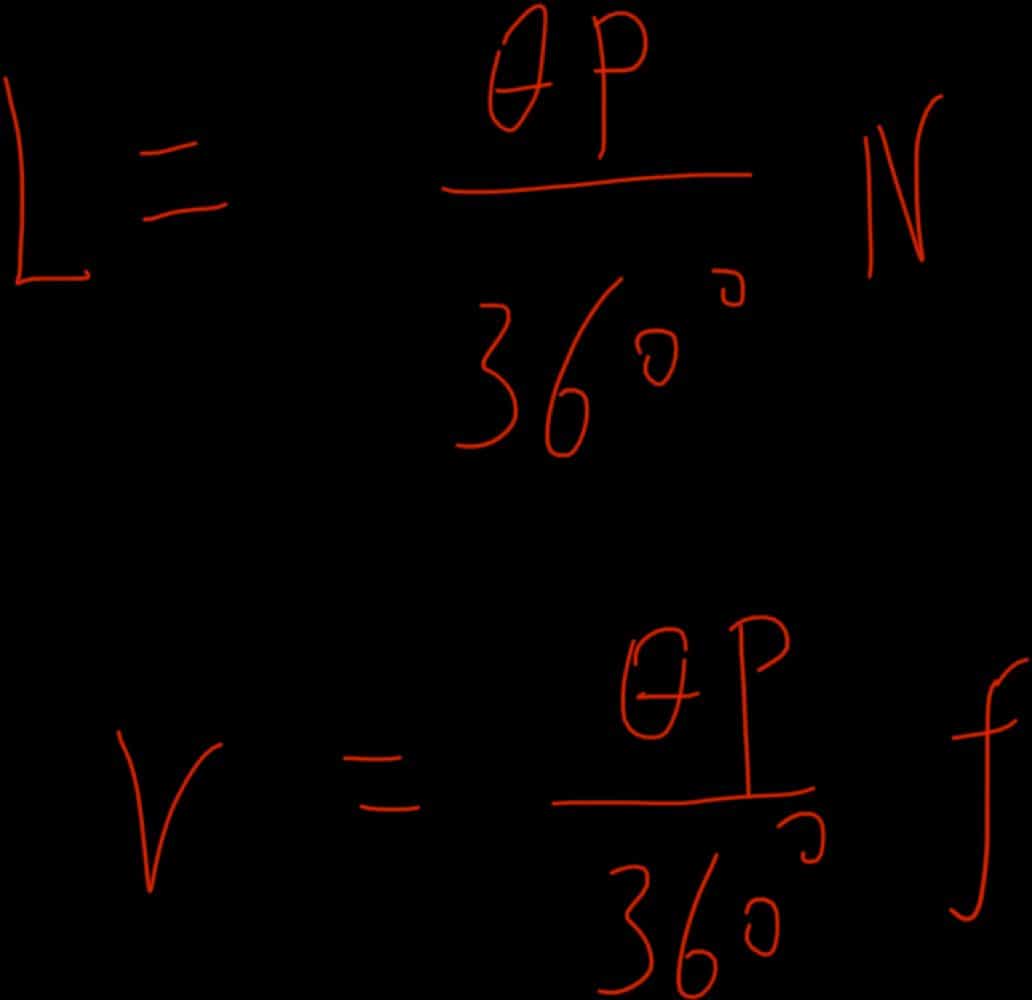 L = θP/360° N
V = θP/360° f